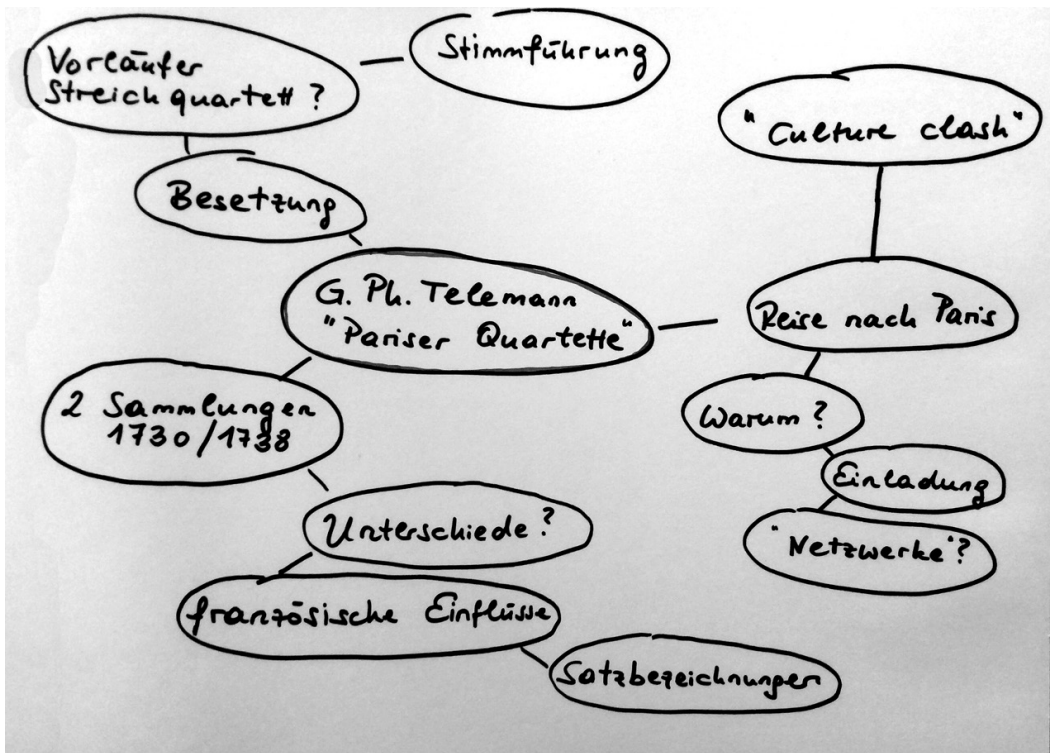 Vorläufer
Streichquartett?
Stimmführung
"Culture clash"
Besetzung
G. Ph. Telemann
"Pariser Quartette"
Reise nach Paris
2 Sammlungen
1730/1738
Warum?
Einladung
"Netzwerke"?
Unterschiede?
französische Einflüsse
Satzbezeichnungen